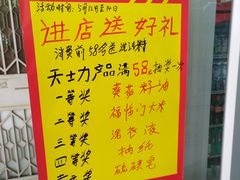 活动时间:5月12日至14日
进店送好礼
消费前58名送洗洁精
天士力产品满58元抽奖一次
一等奖 葵花籽油
二等奖 福临门大米
三等奖 洗衣液
四等奖 抽纸
硫磺皂